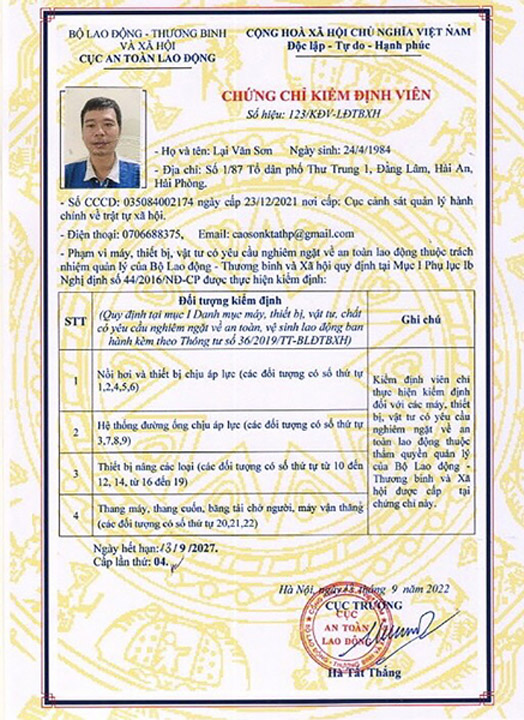 BỘ LAO ĐỘNG - THƯƠNG BINH
VÀ XÃ HỘI
CỤC AN TOÀN LAO ĐỘNG
CỘNG HOÀ XÃ HỘI CHỦ NGHĨA VIỆT NAM
Độc lập - Tự do - Hạnh phúc
CHỨNG CHỈ KIỂM ĐỊNH VIÊN
Số hiệu: 123/KĐV-LĐTBXH
- Họ và tên: Lại Văn Sơn Ngày sinh: 24/4/1984
- Địa chỉ: Số 1/87 Tổ dân phố Thư Trung 1, Đằng Lâm, Hải An,
Hải Phòng.
- Số CCCD: 035084002174 ngày cấp 23/12/2021 nơi cấp: Cục cảnh sát quản lý hành
chính về trật tự xã hội.
- Điện thoại: 0706688375, Email: caosonktathp@gmail.com
- Phạm vi máy, thiết bị, vật tư có yêu cầu nghiêm ngặt về an toàn lao động thuộc trách
nhiệm quản lý của Bộ Lao động - Thương binh và Xã hội quy định tại Mục I Phụ lục Ib
Nghị định số 44/2016/NĐ-CP được thực hiện kiểm định:
STT
Đối tượng kiểm định
(Quy định tại mục I Danh mục máy, thiết bị, vật tư, chất
có yêu cầu nghiêm ngặt về an toàn, vệ sinh lao động ban
hành kèm theo Thông tư số 36/2019/TT-BLĐTBXH)
Ghi chú
1
Nồi hơi và thiết bị chịu áp lực (các đối tượng có số thứ tự
1,2,4,5,6)
2
Hệ thống đường ống chịu áp lực (các đối tượng có số thứ tự
3,7,8,9)
3
Thiết bị nâng các loại (các đối tượng có số thứ tự từ 10 đến
12, 14, từ 16 đến 19)
4
Thang máy, thang cuốn, băng tải chở người, máy vận thăng
(các đối tượng có số thứ tự 20,21,22)
Kiểm định viên chỉ
thực hiện kiểm định
đối với các máy, thiết
bị, vật tư có yêu cầu
nghiêm ngặt về an
toàn lao động thuộc
thẩm quyền quản lý
của Bộ Lao động -
Thương binh và Xã
hội được cấp tại
chứng chỉ này.
Ngày hết hạn: 13/9/2027.
Cấp lần thứ: 04.
Hà Nội, ngày 13 tháng 9 năm 2022
CỤC TRƯỞNG
CỤC
AN TOÀN
LAO ĐỘNG
Hà Tất Thắng